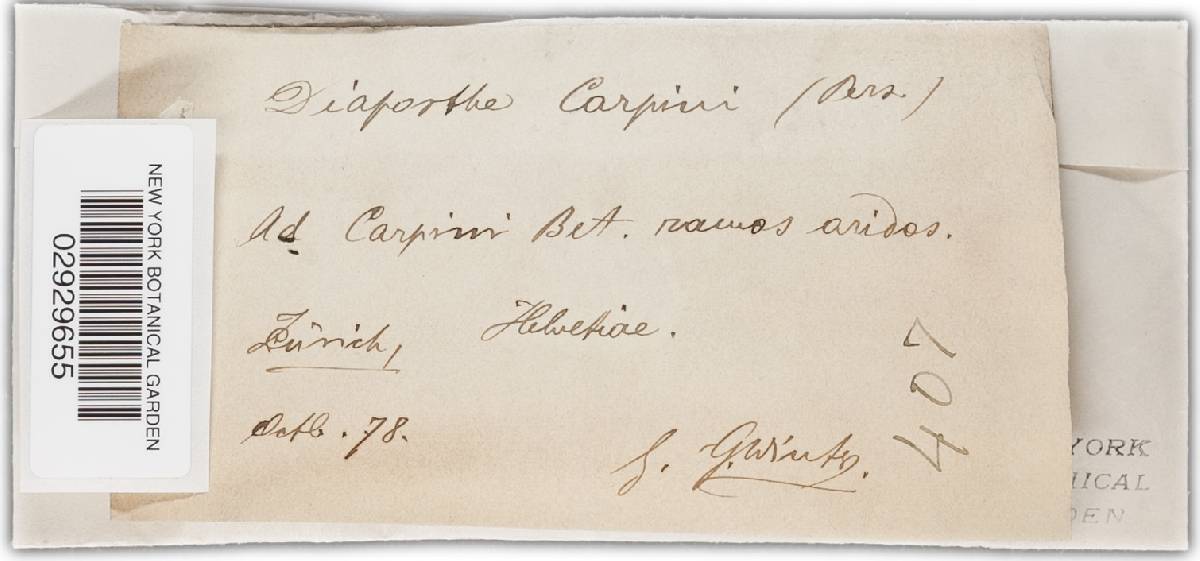 Diaporthe Carpini (Pers.)
Ad Carpini Bet. ramos aridos.
Zürich, Helvetiae.
Octb. 78.
G. Winter.
407
NEW YORK BOTANICAL GARDEN
02929655
YORK
ICAL
DEN